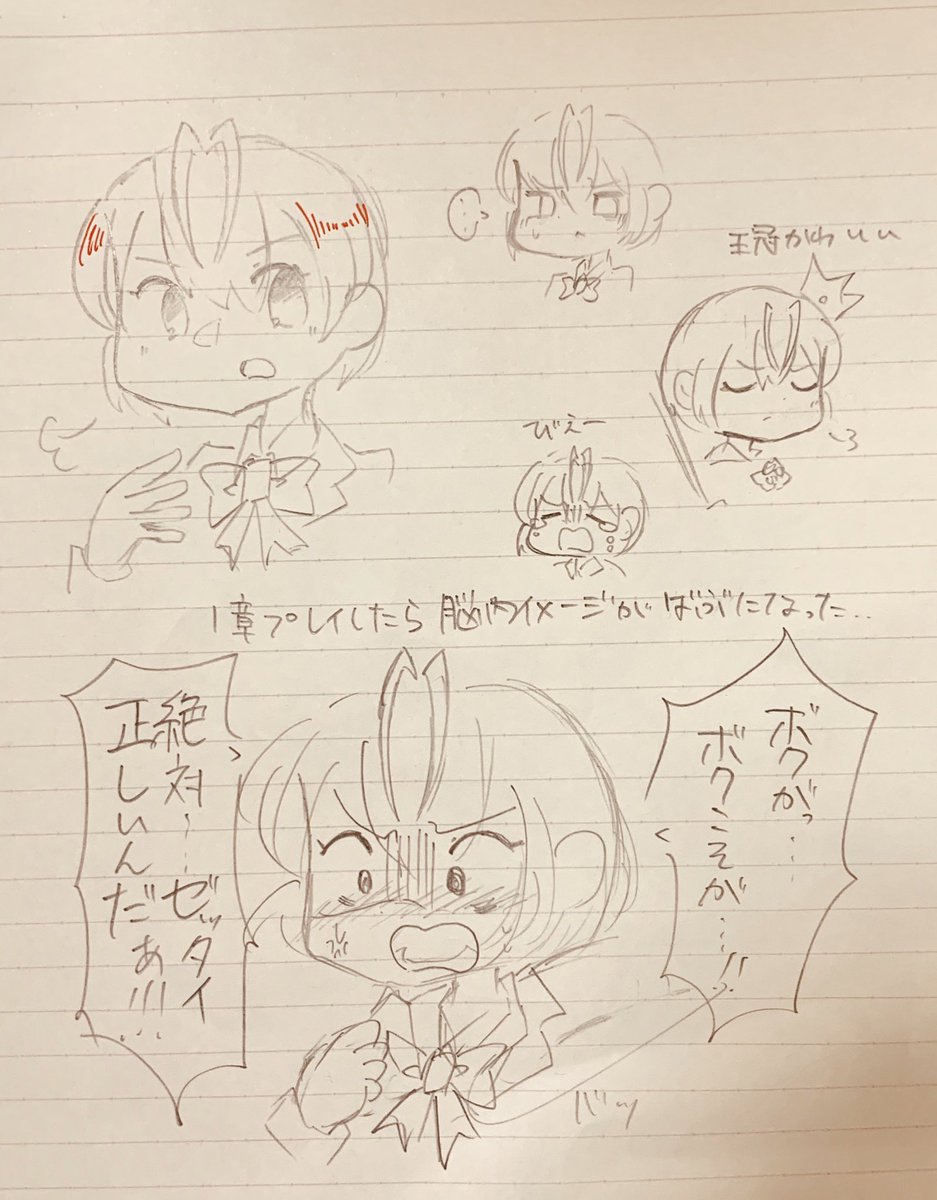 王冠かわいい
びえー
1章プレイしたら脳内イメージがばぶになった...
ボクがっ……
ボクこそが……!!
絶対……ゼッタイ
正しいんだぁ!!!...
バッ